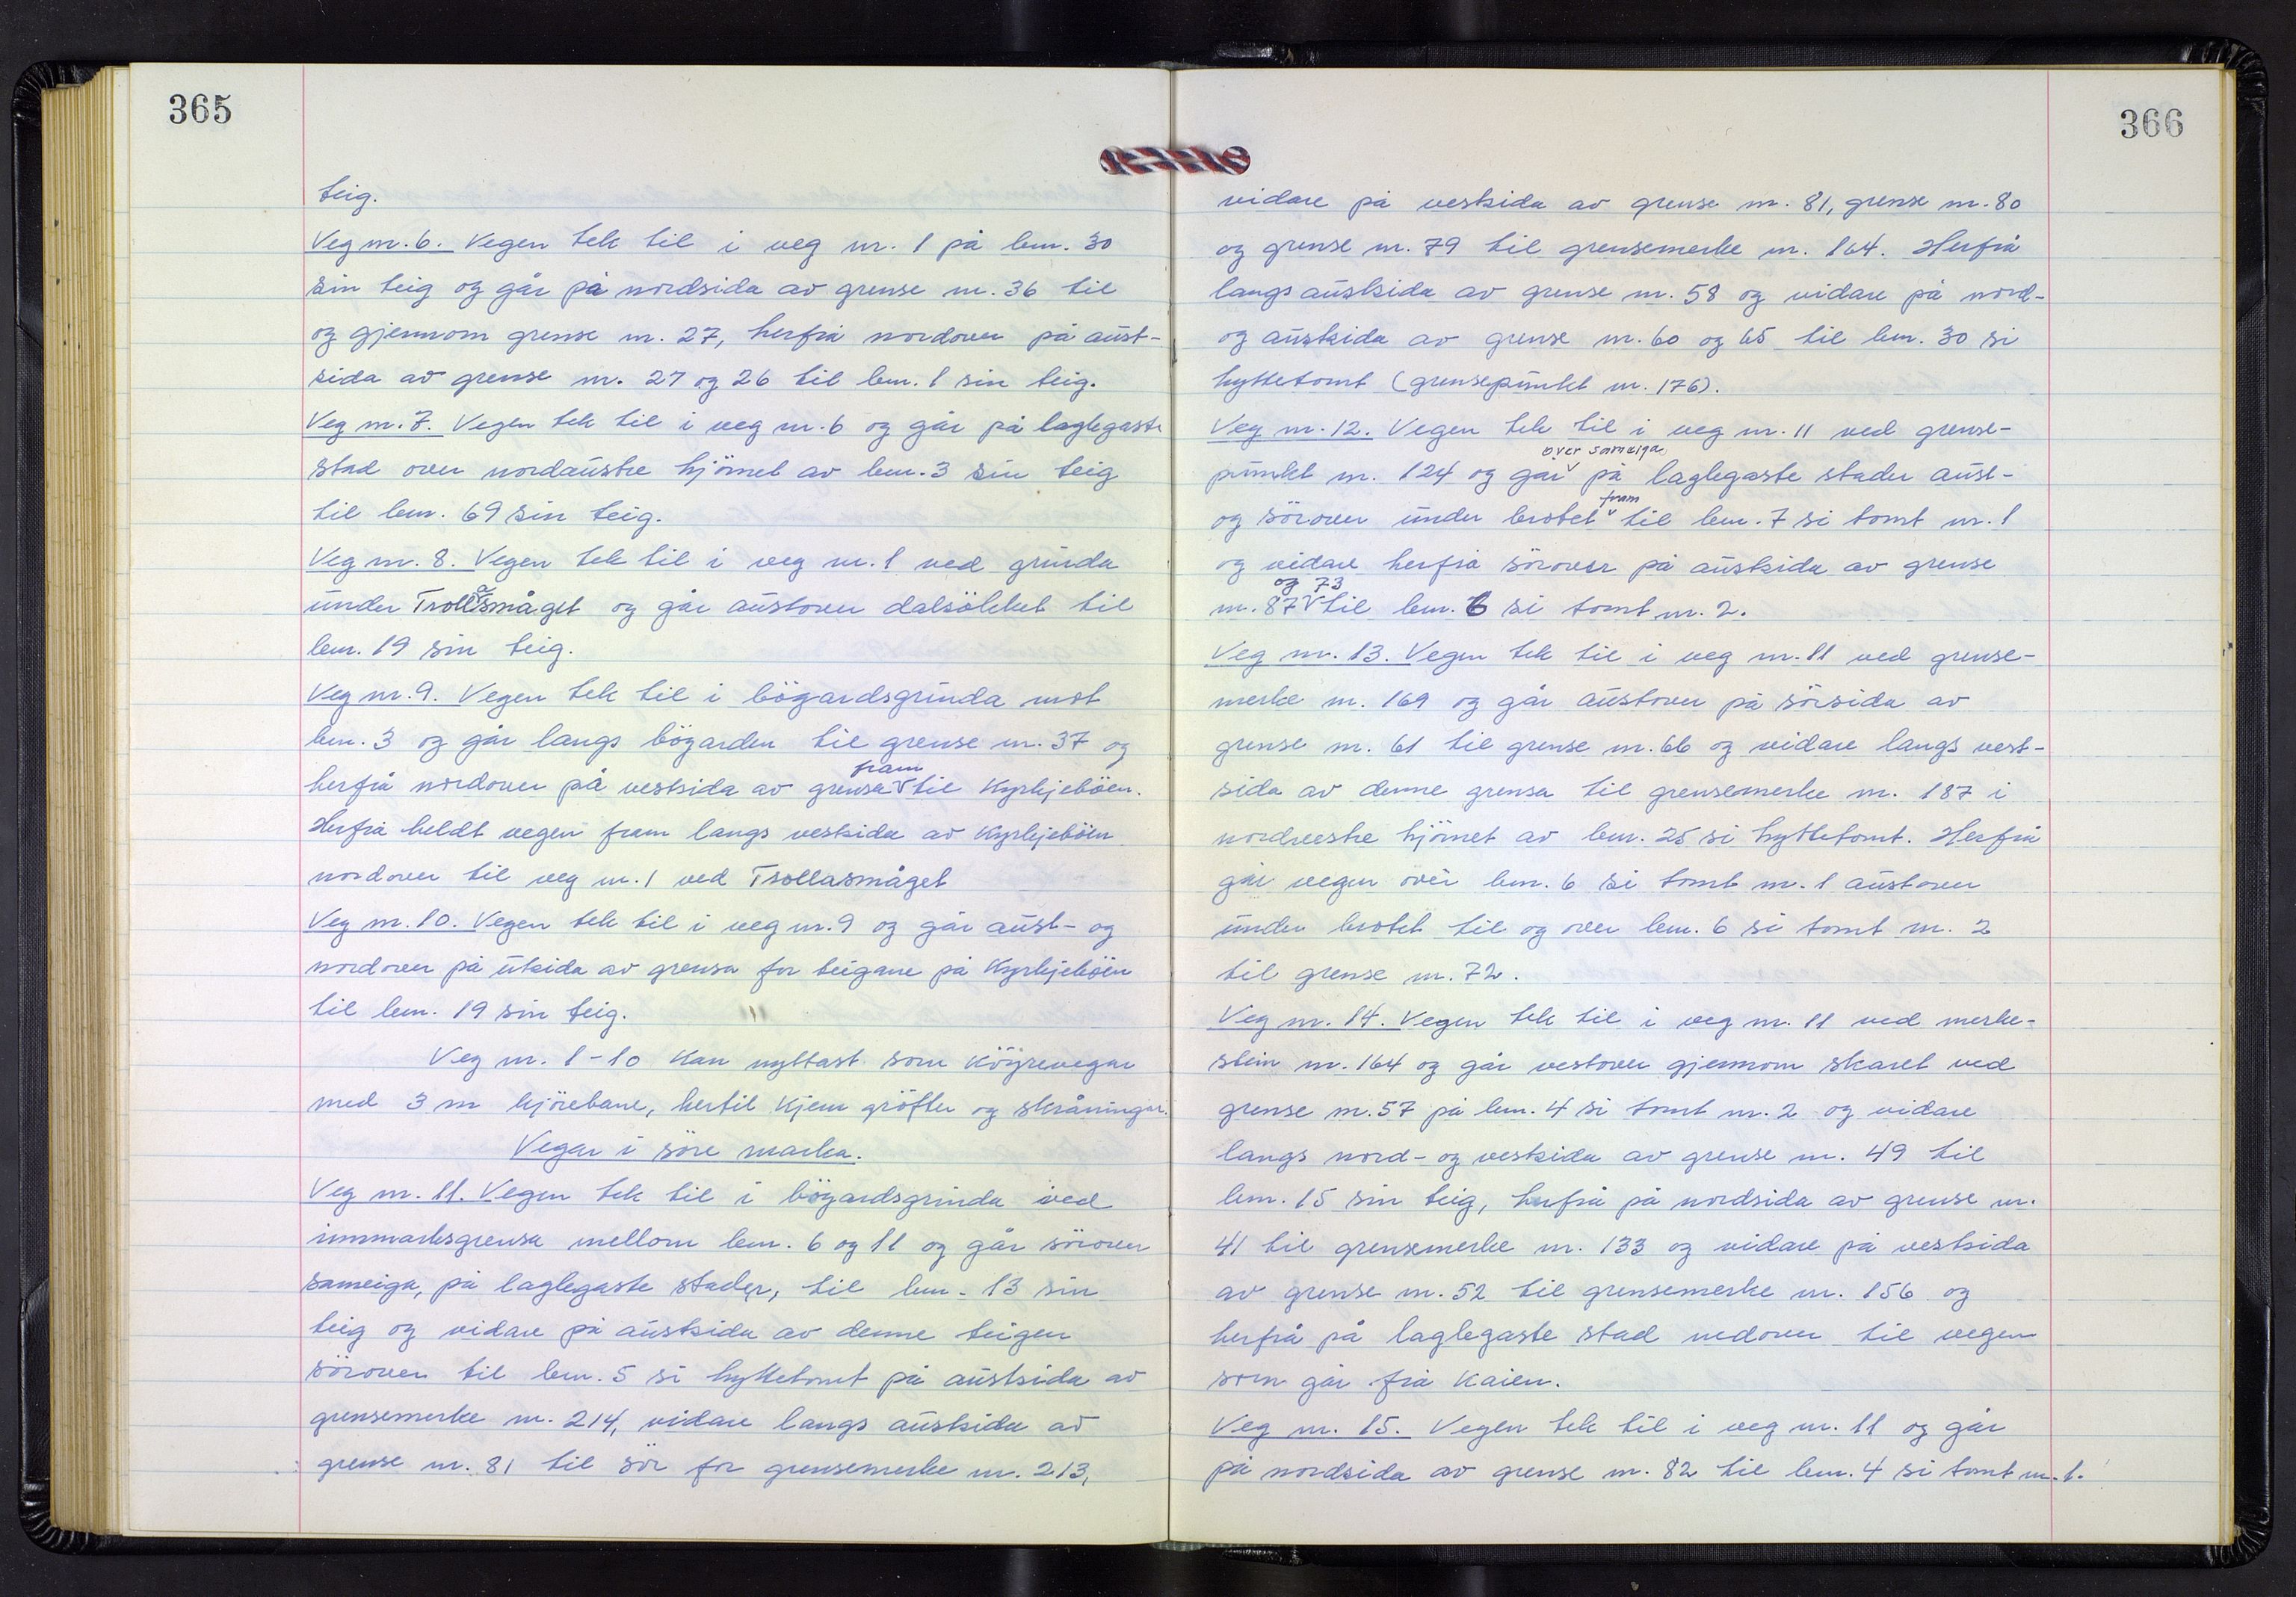 365
teig.
Veg nr. 6. Vegen tek til i veg nr. 1 på bnr. 30
sin teig og går på nordsida av grense nr. 36 til
og gjennom grense nr. 27, herfrå nordover på aust-
sida av grense nr. 27 og 26 til bnr. 1 sin teig.
Veg nr. 7. Vegen tek til i veg nr. 6 og går på laglegaste
stad over nordaustre hjörnet av bnr. 3 sin teig
til bnr. 69 sin teig.
Veg nr. 8. Vegen tek til i veg nr. 1 ved grinda
under Trollasmåget og går austover dalsökket til
bnr. 19 sin teig.
Veg nr. 9. Vegen tek til i bögardsgrinda mot
bnr. 3 og går langs bögarden til grense nr. 37 og
fram
herfrå nordover på vestsida av grensa til Kyrkjeböen.
Herfrå heldt vegen fram langs vestsida av Kyrkjeböen
nordover til veg nr. 1 ved Trollasmåget
Veg nr. 10. Vegen tek til i veg nr. 9 og går aust- og
nordover på utsida av grensa for teigane på Kyrkjeböen
til bnr. 19 sin teig.
Veg nr. 1-10 kan nyttast som köyrevegar
med 3 m kjörebane, hertil kjem gröfter og skråningar.
Vegar i söre marka.
Veg nr. 11. Vegen tek til i bögardsgrinda ved
innmarksgrensa mellom bnr. 6 og 11 og går sörover
sameiga, på laglegaste stader, til bnr. 13 sin
teig og vidare på austsida av denne teigen
sörover til bnr. 5 si hyttetomt på austsida av
grensemerke nr. 214, vidare langs austsida av
grense nr. 81 til sör for grensemerke nr. 213,
366
vidare på vestsida av grense nr. 81, grense nr. 80
og grense nr. 79 til grensemerke nr. 164. Herfrå
langs austsida av grense nr. 58 og vidare på nord-
og austsida av grense nr. 60 og 65 til bnr. 30 si
hyttetomt (grensepunkt nr. 176).
Veg nr. 12. Vegen tek til i veg nr. 11 ved grense-
over sameiga
punkt nr. 124 og går på laglegaste stader aust-
fram
og sörover under brotet til bnr. 7 si tomt nr. 1
og vidare herfrå sörover på austsida av grense
og 73
nr. 87 til bnr. 6 si tomt nr. 2.
Veg nr. 13. Vegen tek til i veg nr. 11 ved grense-
merke nr. 169 og går austover på sörsida av
grense nr. 61 til grense nr. 66 og vidare langs vest-
sida av denne grensa til grensemerke nr. 187 i
nordvestre hjörnet av bnr. 25 si hyttetomt. Herfrå
går vegen over bnr. 6 si tomt nr. 1 austover
under brotet til og over bnr. 6 si tomt nr. 2
til grense nr. 72.
Veg nr. 14. Vegen tek til i veg nr. 11 ved merke-
stein nr. 164 og går vestover gjennom skaret ved
grense nr. 57 på bnr. 4 si tomt nr. 2 og vidare
langs nord- og vestsida av grense nr. 49 til
bnr. 15 sin teig, herfrå på nordsida av grense nr.
41 til grensemerke nr. 133 og vidare på vestsida
av grense nr. 52 til grensemerke nr. 156 og
herfrå på laglegaste stad nedover til vegen
som går frå kaien.
Veg nr. 15. Vegen tek til i veg nr. 11 og går
på nordsida av grense nr. 82 til bnr. 4 si tomt nr. 1.